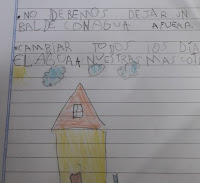 . NO DEBEMOS DEJAR UN
BALDE CON AGUA AFUERA.
. CAMBIAR TODOS LOS DIA
EL AGUA A NUESTRAS MASCOTA